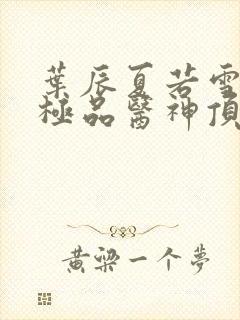 葉辰夏若雪
極品醫神頂
黄梁一个夢